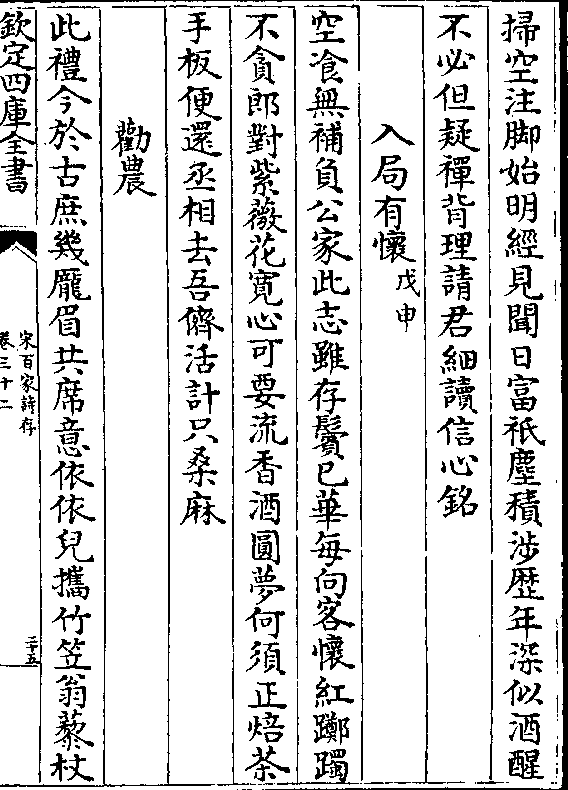 掃空注脚始明經見聞日富祇塵積涉歴年深似酒醒
不必但疑禪背理請君細讀信心銘
入局有懷戊申
空飡無補負公家此志雖存鬢已華每向客懷紅躑躅
不貪郎對紫薇花寛心可要流香酒圓夢何須正焙茶
手板便還丞相去吾儕活計只桑麻
勸農
此禮今於古庶幾龎眉共席意依依兒攜竹笠翁藜杖
欽定四庫全書
宋百家詩存
卷三十二
二十五